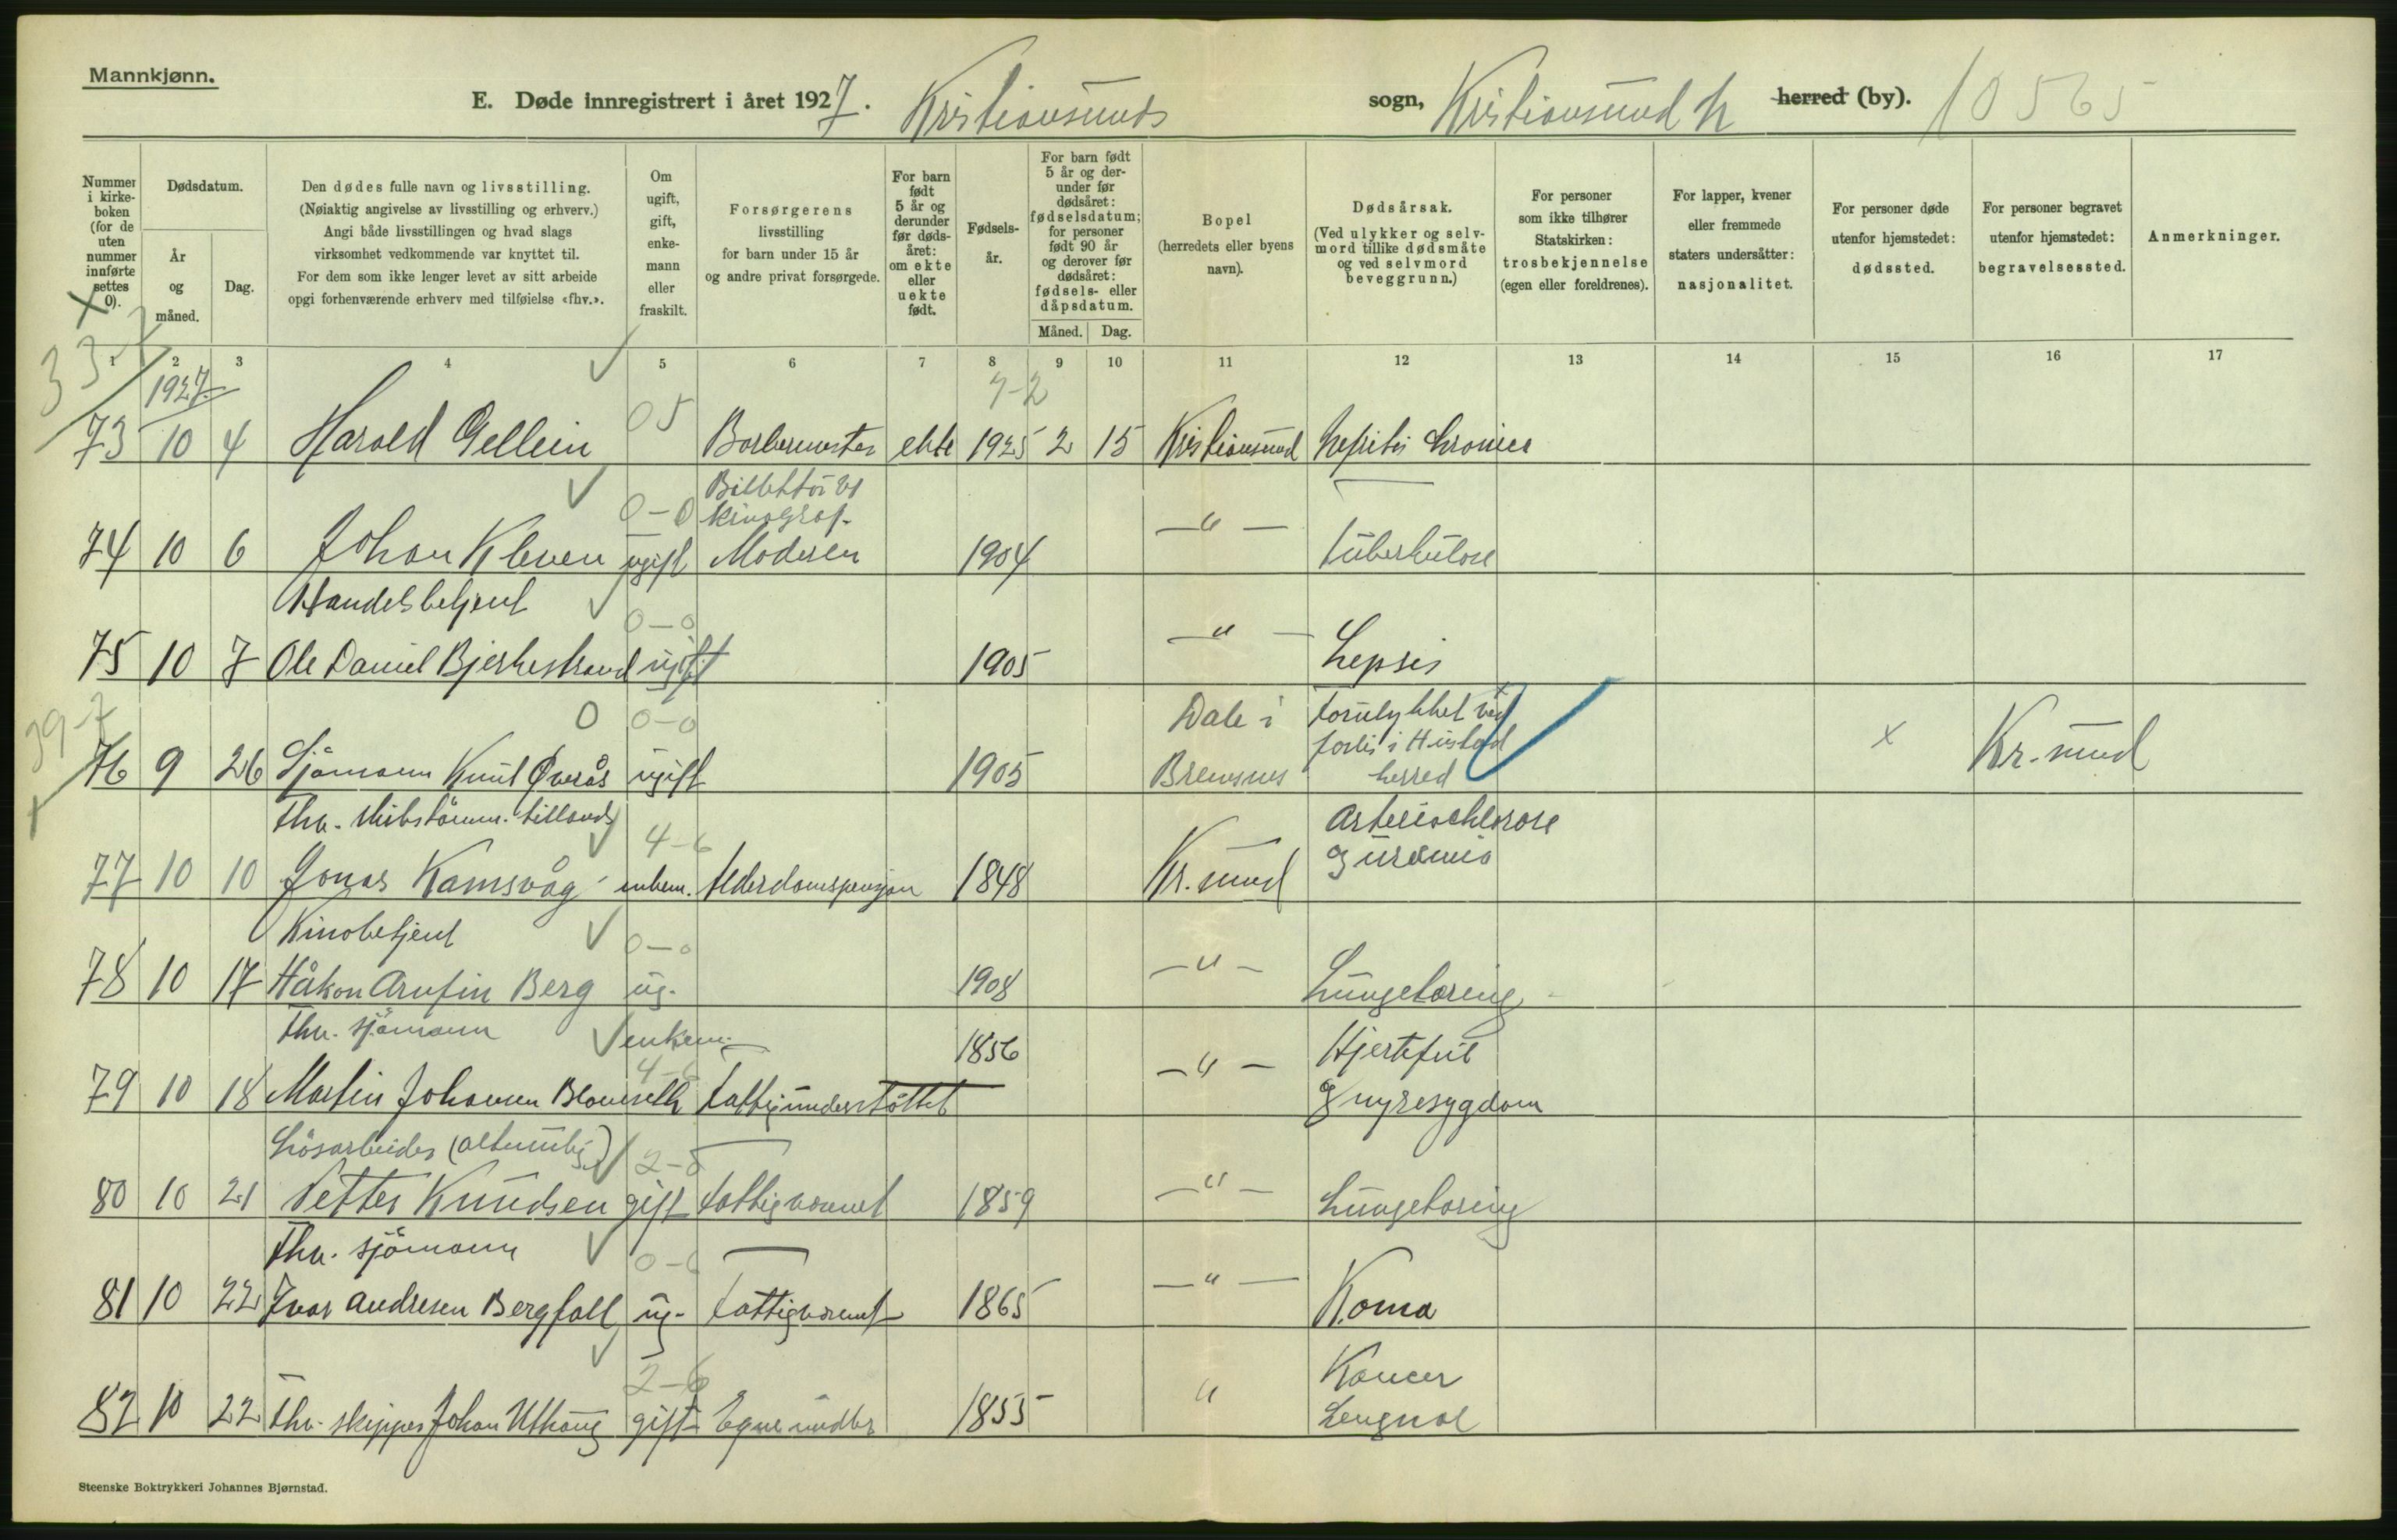 Mannkjønn.
E. Døde innregistrert i året 1927. Kristiansunds sogn, Kristiansund N herred (by). 10565
Nummer i kirkeboken (for de uten nummer innførte settes 0).
Dødsdatum.
År og måned.
Dag.
Den dødes fulle navn og livsstilling.
(Nøiaktig angivelse av livsstilling og erhverv.)
Angi både livsstillingen og hvad slags
virksomhet vedkommende var knyttet til.
For dem som ikke lenger levet av sitt arbeide
opgi forhenværende erhverv med tilføielse «fhv.».
Om ugift, gift, enkemann eller fraskilt.
Forsørgerens
livsstilling
for barn under 15 år
og andre privat forsørgede.
For barn født 5 år og derunder før dødsåret: om ekte eller uekte født.
Fødselsår.
For barn født 5 år og derunder før dødsåret: fødselsdatum; for personer født 90 år og derover før dødsåret: fødsels- eller dåpsdatum.
Måned.
Dag.
Bopel
(herredets eller byens
navn).
Dødsårsak.
(Ved ulykker og selvmord tillike dødsmåte og ved selvmord beveggrunn.)
For personer
som ikke tilhører
Statskirken:
trosbekjennelse
(egen eller foreldrenes).
For lapper, kvener
eller fremmede
staters undersåtter:
nasjonalitet.
For personer døde
utenfor hjemstedet:
dødssted.
For personer begravet
utenfor hjemstedet:
begravelsessted.
Anmerkninger.
1 2 3 4 5 6 7 8 9 10 11 12 13 14 15 16 17
337
1927
7-2
05
73 10 4 Harald Gellein Barbermester ekte 1925 2 15 Kristiansund Nefritis kronica
Billettör ved
0-0 kinograf.
74 10 6 Johan Kleven ugift Moderen 1904 -"- tuberkulose
Handelsbetjent
0-0
75 10 7 Ole Daniel Bjerkestrand ugift 1905 -"- Sepsis
39-7
0 0-0 Dale i forulykket ved
forlis i Hustad
76 9 26 Sjömann Knut Øverås ugift 1905 Bremsnes herred x Kr.sund
Fhv.
4-6 Arteriosklerose
og uremia
77 10 10 Jonas Kamsvåg enkem. Alderdomspensjon 1848 Kr.sund
Kinobetjent
0-0
78 10 17 Håkon Arnfin Berg ug. 1908 -"- Lungetæring
Fhv. sjömann enkem. 1856 Hjertefeil
4-6
79 10 18 Martin Johansen fattigunderstöttet -"- og nyresygdom
Lösarbeider (altmulig)
2-5
80 10 21 Petter Knudsen gift fattigvesenet 1859 -"- Lungetæring
Fhv. sjömann
0-6
81 10 22 Ivar Andresen Bergfall ug. fattigvesenet 1865 -"- Koma
2-6 Kancer
82 10 22 Fhv. skipper Johan Uthaug gift Egne midler 1855 "
Steenske Boktrykkeri Johannes Bjørnstad.